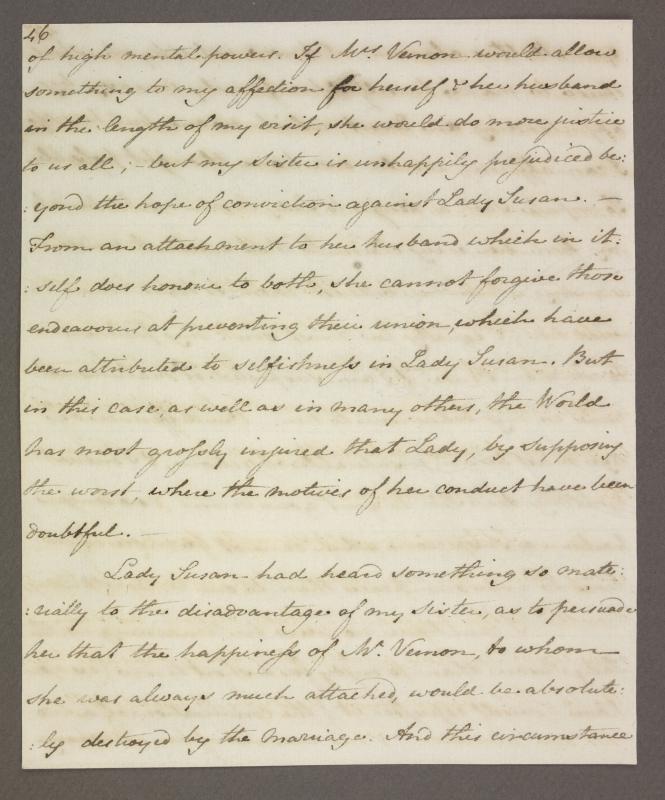 46
of high mental powers. If Mrs Vernon would allow
something to my affection for herself & her husband
in the length of my visit, she would do more justice
to us all; – but my Sister is unhappily prejudiced be:
:yond the hope of conviction against Lady Susan. –
From an attachment to her husband which in it:
:self does honour to both, she cannot forgive those
endeavours at preventing their union, which have
been attributed to selfishness in Lady Susan. But
in this case, as well as in many others, the World
has most grossly injured that Lady, by supposing
the worst, where the motives of her conduct have been
doubtful. –
Lady Susan had heard something so mate:
:rially to the disadvantage of my Sister, as to persuade
her that the happiness of Mr. Vernon, to whom
she was always much attached, would be absolute:
:ly destroyed by the Marriage. And this circumstance